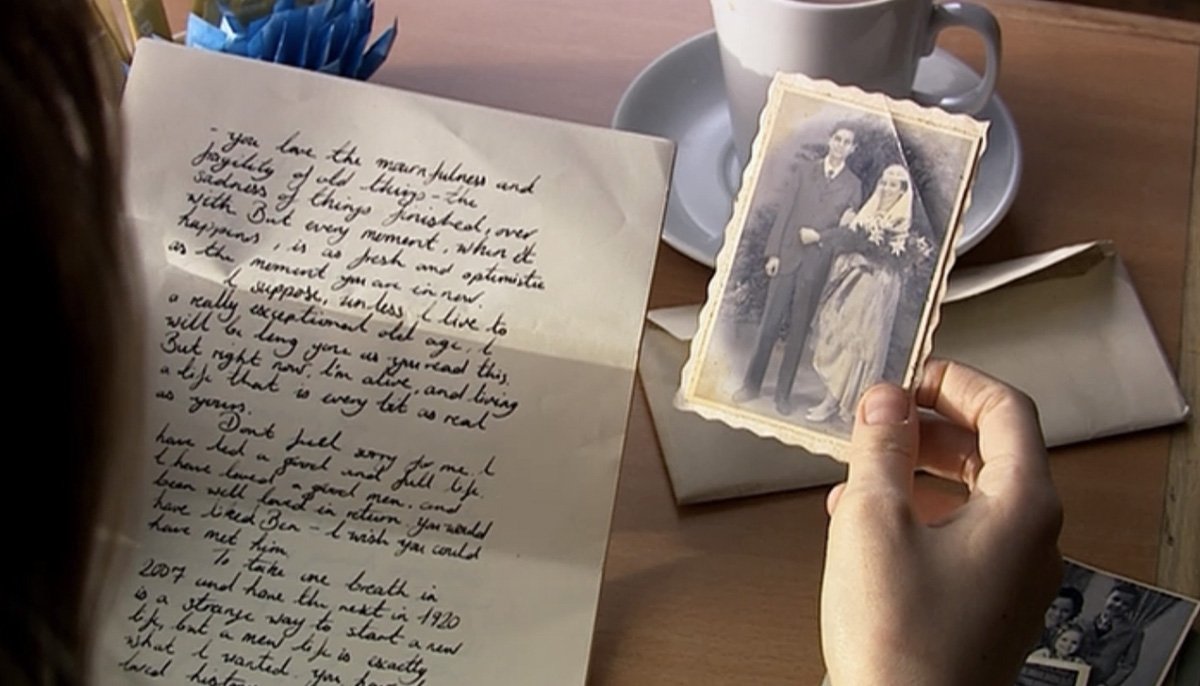 - you love the mournfulness and
fragility of old things - the
sadness of things finished, over
with. But every moment, when it
happens, is as fresh and optimistic
as the moment you are in now.
I suppose, unless I live to
a really exceptional old age, I
will be long gone as you read this.
But right now, I'm alive, and living
a life that is every bit as real
as yours.
Don't feel sorry for me. I
have led a good and full life.
I have loved a good man, and
been well loved in return. You would
have liked Ben - I wish you could
have met him.
To take one breath in
2007 and have the next in 1920
is a strange way to start a new
life, but a new life is exactly
what I wanted. You have
loved history